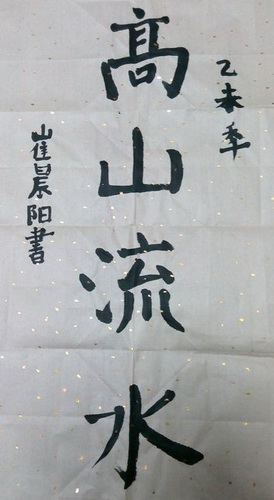 乙未季
髙山流水
崔晨阳書